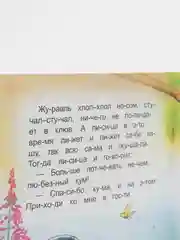 Жу-равль хлоп-хлоп но-сом, сту-
чал-сту-чал, ни-че-го не по-па-да-
ет в клюв. А ли-си-ца в э-то
вре-мя ли-жет и ли-жет се-бе ка-
шу, так всю са-ма и ску-ша-ла.
Тог-да ли-си-ца и го-во-рит:
— Боль-ше пот-че-вать не-чем,
лю-без-ный кум!
— Спа-си-бо, ку-ма, и на э-том.
При-хо-ди ко мне в гос-ти.